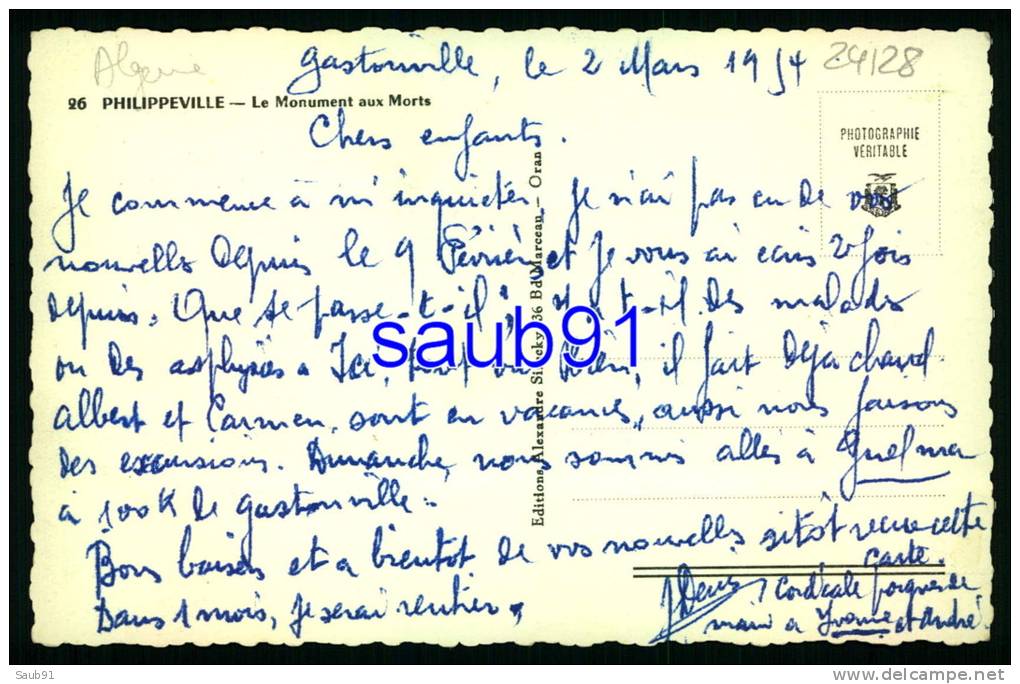 Algerie
Gastonville, le 2 Mars 1954
24128
26 PHILIPPEVILLE — Le Monument aux Morts
PHOTOGRAPHIE
VÉRITABLE
Chers enfants.
Je commence à m'inquiéter. Je n'ai pas eu de vos
nouvelles depuis le 9 Février, et je vous ai écris 2 fois
depuis. Que se passe-t-il, Y a t-il des malades
ou des asphyxiés. Ici, tout va bien, il fait déjà chaud
Albert et Carmen, sont en vacances, aussi nous faisons
des excursions. Dimanche, nous sommes allés à Guelma
à 100K de Gastonville.
Bons baisers et a bientot de vos nouvelles sitôt recue cette
carte.
Dans 1 mois, je serai rentier,
Cordiale poignée de
main a Yvonne et André.
Editions Alexandre 36 Bd Marceau - Oran
saub91
Saub91
www.delcampe.net